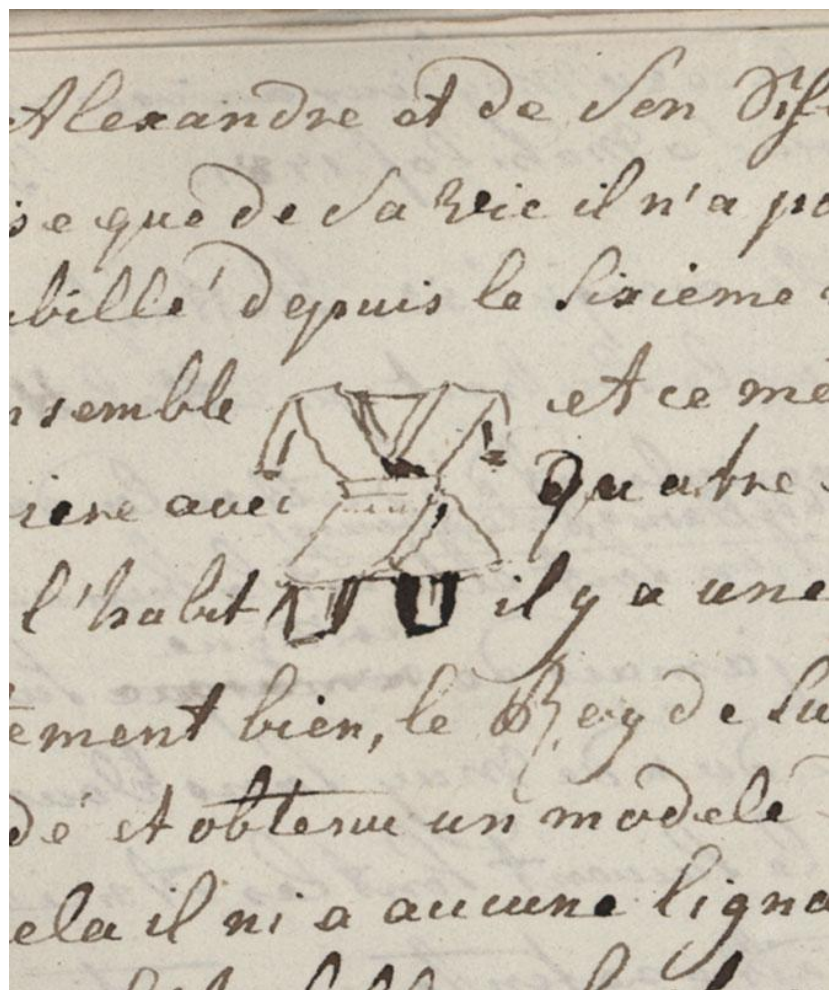 Alexandre et de Son
que de Sa Vie il n'a
depuis le Sixieme
nsemble et ce me
avec quatre
l'habit il y a une
ement bien, le Roy de Su
dé et obtenu un modele
ela il ni a aucune ligna